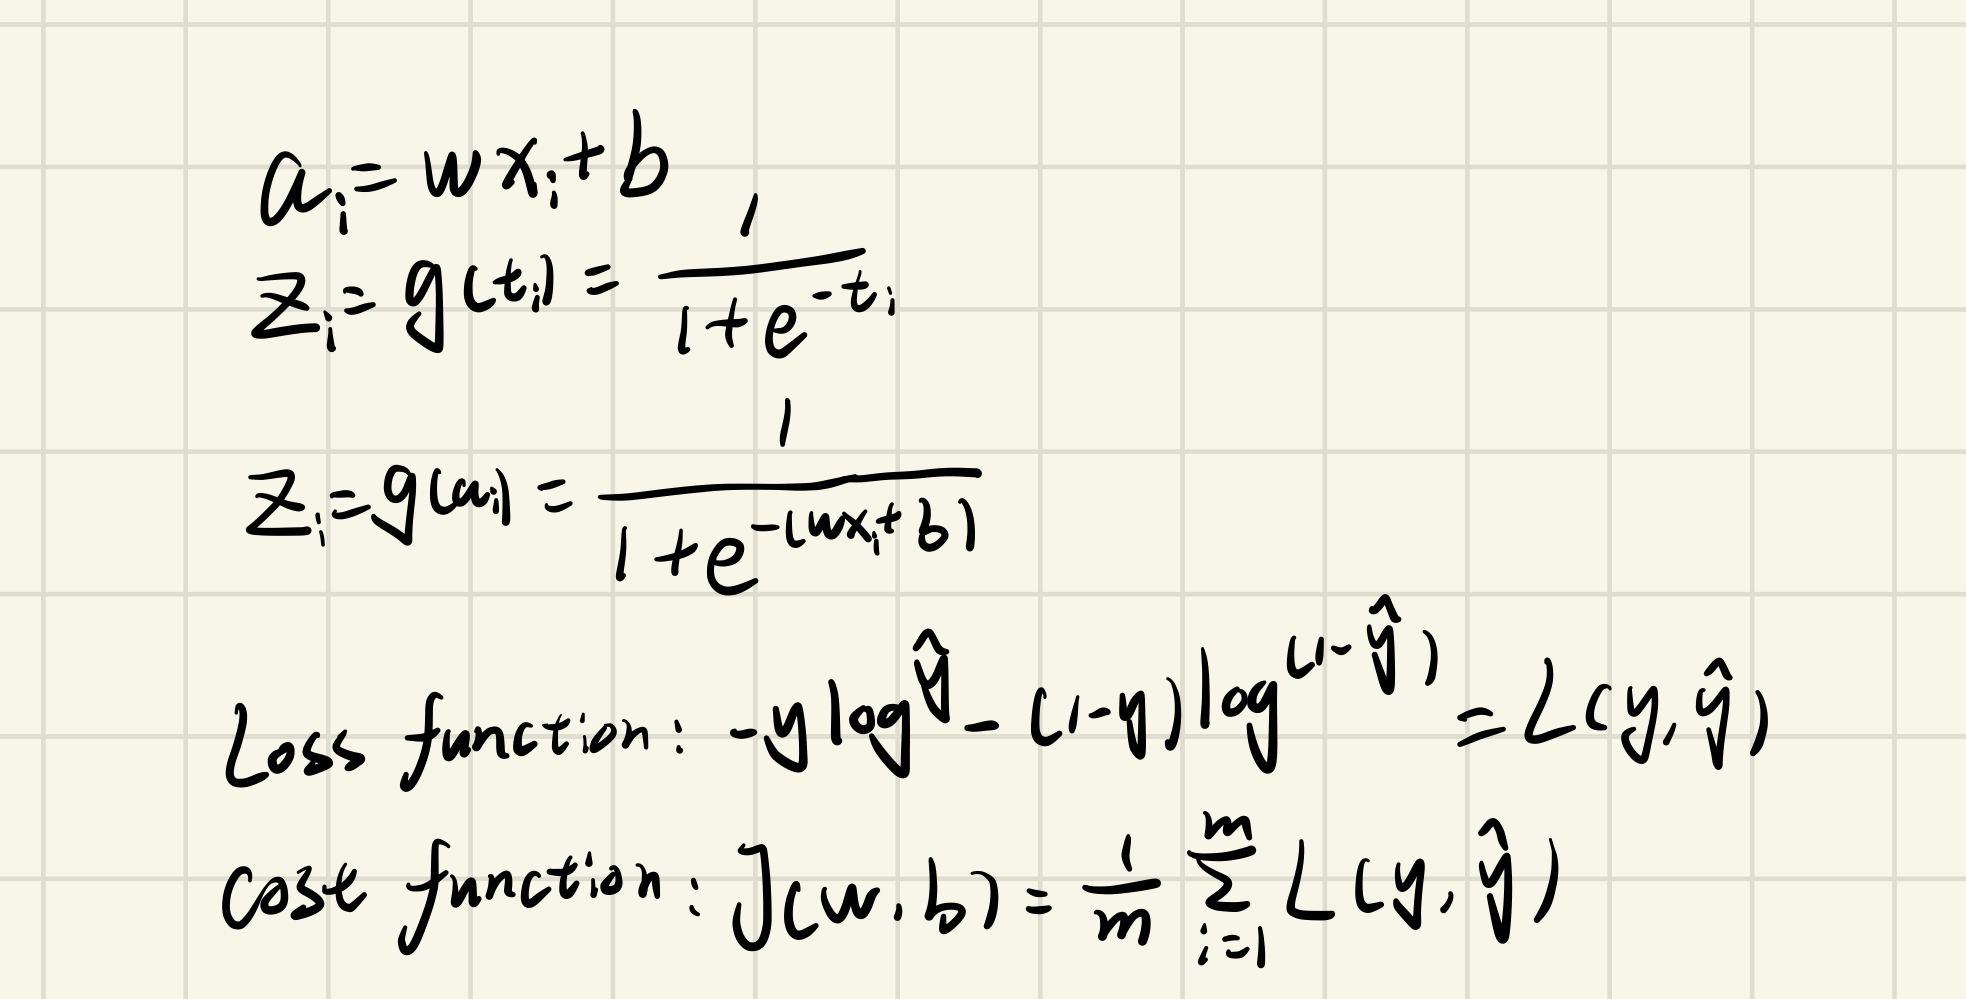 aᵢ = wxᵢ + b
zᵢ = g(tᵢ) = 1 / (1 + e^(-tᵢ))
zᵢ = g(aᵢ) = 1 / (1 + e^(-(wxᵢ + b)))
Loss function: -y log^ŷ - (1-y) log^(1-ŷ) = L(y, ŷ)
cost function: J(w, b) = 1/m ∑_{i=1}^{m} L(y, ŷ)